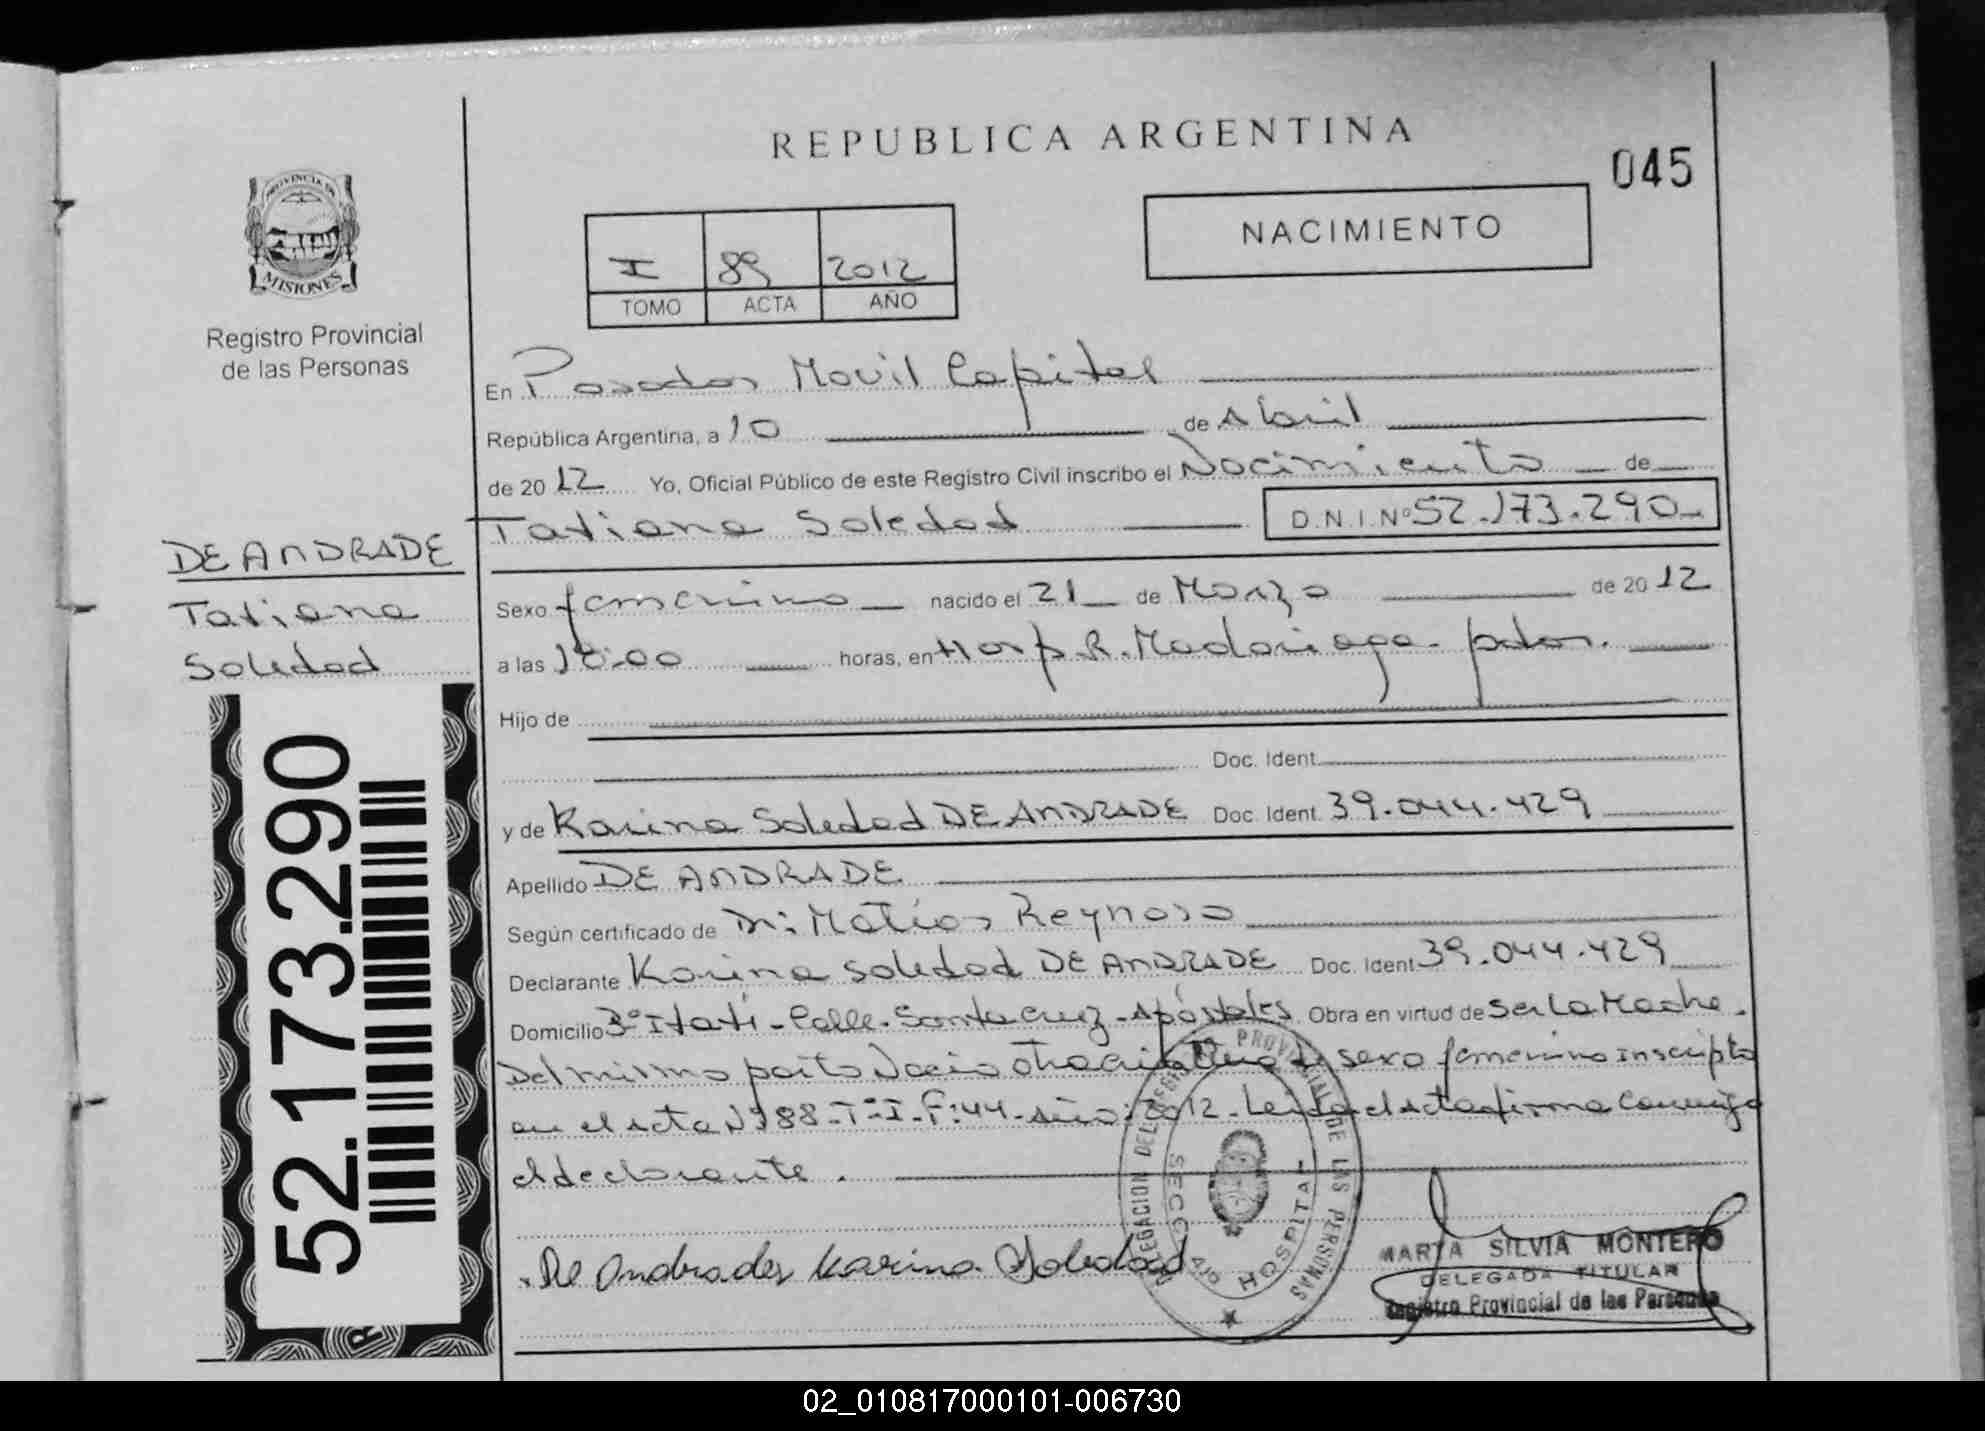 REPUBLICA ARGENTINA
045
NACIMIENTO
PROVINCIA DE
MISIONES
Registro Provincial
de las Personas
I 89 2012
TOMO ACTA AÑO
En Posadas Movil Capital
República Argentina, a 10 de Abril
de 2012 Yo, Oficial Público de este Registro Civil inscribo el Nacimiento de
Tatiana Soledad D.N.I.Nº 52.173.290
DE ANDRADE
Tatiana
Soledad
Sexo femenino nacido el 21 de Marzo de 2012
a las 18:00 horas, en Hosp. R. Madariaga - pdas.
Hijo de
Doc. Ident.
y de Karina Soledad DE ANDRADE Doc. Ident. 39.044.429
Apellido DE ANDRADE
Según certificado de Dr: Matias Reynoso
Declarante Karina Soledad DE ANDRADE Doc. Ident. 39.044.429
Domicilio Bº Itatí - Calle - Santa Cruz - Apóstoles Obra en virtud de Ser La Madre.
Del mismo parto Nacio otra de sexo femenino inscripta
en el acta Nº 88 - Tº I - F: 44 - año: 2012 - Leida el acta firma conmigo
el declarante.
De Andrades Karina Soledad
DELEGACION DEL REGISTRO PROVINCIAL DE LAS PERSONAS
HOSPITAL
MARTA SILVIA MONTERO
DELEGADA TITULAR
Registro Provincial de las Personas
52.173.290
R
02_010817000101-006730